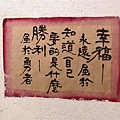 幸福—
永遠屬於
知道自己
要的是什麼
勝利—
屬於勇者